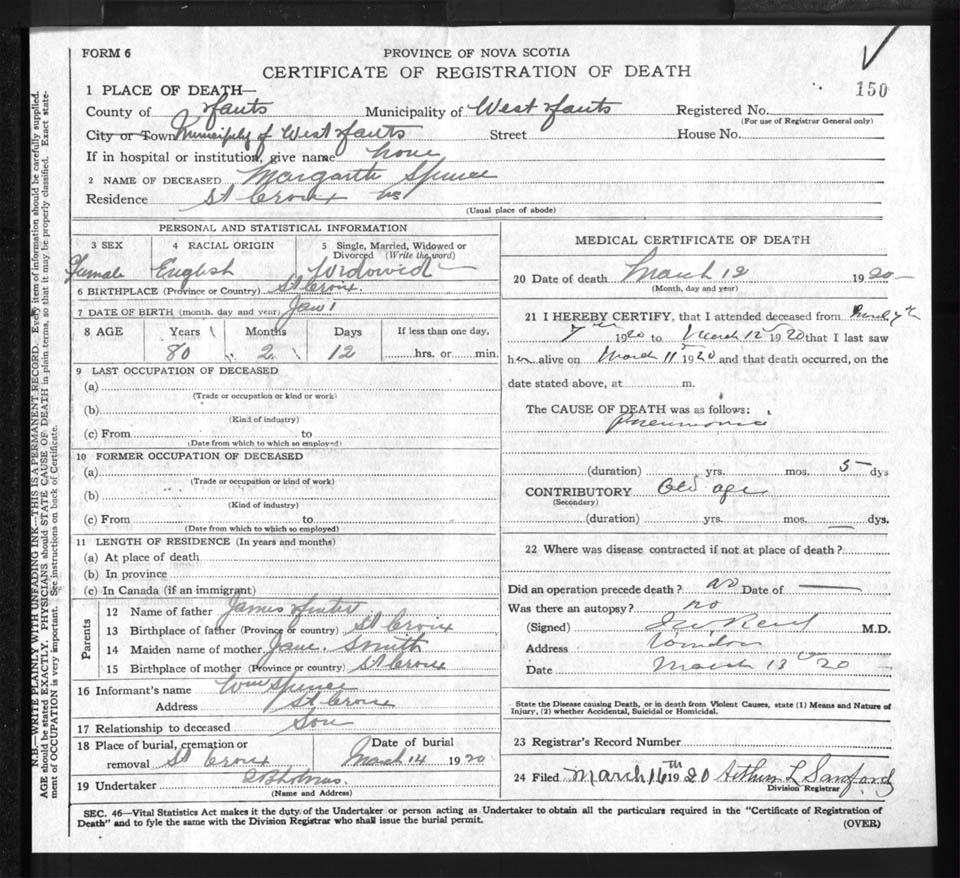 FORM 6
PROVINCE OF NOVA SCOTIA
CERTIFICATE OF REGISTRATION OF DEATH
150
1 PLACE OF DEATH—
County of Hants Municipality of West Hants Registered No.
(For use of Registrar General only)
City or Town Municipality of West Hants Street House No.
If in hospital or institution, give name home
2 NAME OF DECEASED Margarth Spence
Residence St Croix NS
(Usual place of abode)
PERSONAL AND STATISTICAL INFORMATION
3 SEX 4 RACIAL ORIGIN 5 Single, Married, Widowed or Divorced (Write the word)
Female English Widowid
6 BIRTHPLACE (Province or Country) St Croix
7 DATE OF BIRTH (month, day and year) Jan 1
8 AGE Years Months Days If less than one day,
80 2 12 hrs. or min.
9 LAST OCCUPATION OF DECEASED
(a)
(Trade or occupation or kind or work)
(b)
(Kind of industry)
(c) From to
(Date from which to which so employed)
10 FORMER OCCUPATION OF DECEASED
(a)
(Trade or occupation or kind of work)
(b)
(Kind of industry)
(c) From to
(Date from which to which so employed)
11 LENGTH OF RESIDENCE (In years and months)
(a) At place of death
(b) In province
(c) In Canada (if an immigrant)
Parents
12 Name of father James Hunter
13 Birthplace of father (Province or country) St Croix
14 Maiden name of mother Jane Smith
15 Birthplace of mother (Province or country) St Croix
16 Informant's name Wm Spence
Address St Croix
17 Relationship to deceased Son
18 Place of burial, cremation or Date of burial
removal St Croix March 14 1920
19 Undertaker
(Name and Address)
MEDICAL CERTIFICATE OF DEATH
20 Date of death March 12 1920
(Month, day and year)
21 I HEREBY CERTIFY, that I attended deceased from March 7th
7th 1920 to March 12 1920 that I last saw
her alive on March 11 1920 and that death occurred, on the
date stated above, at m.
The CAUSE OF DEATH was as follows:
Pneumonia
(duration) yrs. mos. 5 dys
CONTRIBUTORY Old age
(Secondary)
(duration) yrs. mos. dys.
22 Where was disease contracted if not at place of death?
Did an operation precede death? no Date of
Was there an autopsy? no
(Signed) M.D.
Address Windsor
Date March 13 20
State the Disease causing Death, or in death from Violent Causes, state (1) Means and Nature of
Injury, (2) whether Accidental, Suicidal or Homicidal.
23 Registrar's Record Number
24 Filed March 16th 1920 Arthur L Sanford
Division Registrar
SEC. 46—Vital Statistics Act makes it the duty of the Undertaker or person acting as Undertaker to obtain all the particulars required in the "Certificate of Registration of
Death" and to fyle the same with the Division Registrar who shall issue the burial permit.
(OVER)
N.B.—WRITE PLAINLY WITH UNFADING INK—THIS IS A PERMANENT RECORD. Every item of information should be carefully supplied.
AGE should be stated EXACTLY. PHYSICIANS should STATE CAUSE OF DEATH in plain terms, so that it may be properly classified. Exact state-
ment of OCCUPATION is very important. See instructions on back of Certificate.